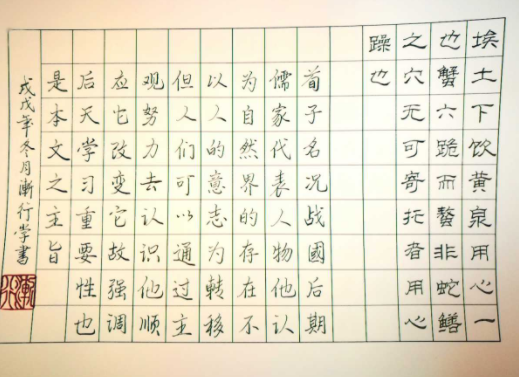 埃土下饮黄泉用心一
也蟹六跪而螯非蛇鳝
之穴无可寄托者用心
躁也
荀子名况战國后期
儒家代表人物他认
为自然界的存在不
以人的意志为转移
但人们可以通过主
观努力去认识他顺
应它改变它故强调
后天学习重要性也
是本文之主旨
戊戌年冬月渐行学书